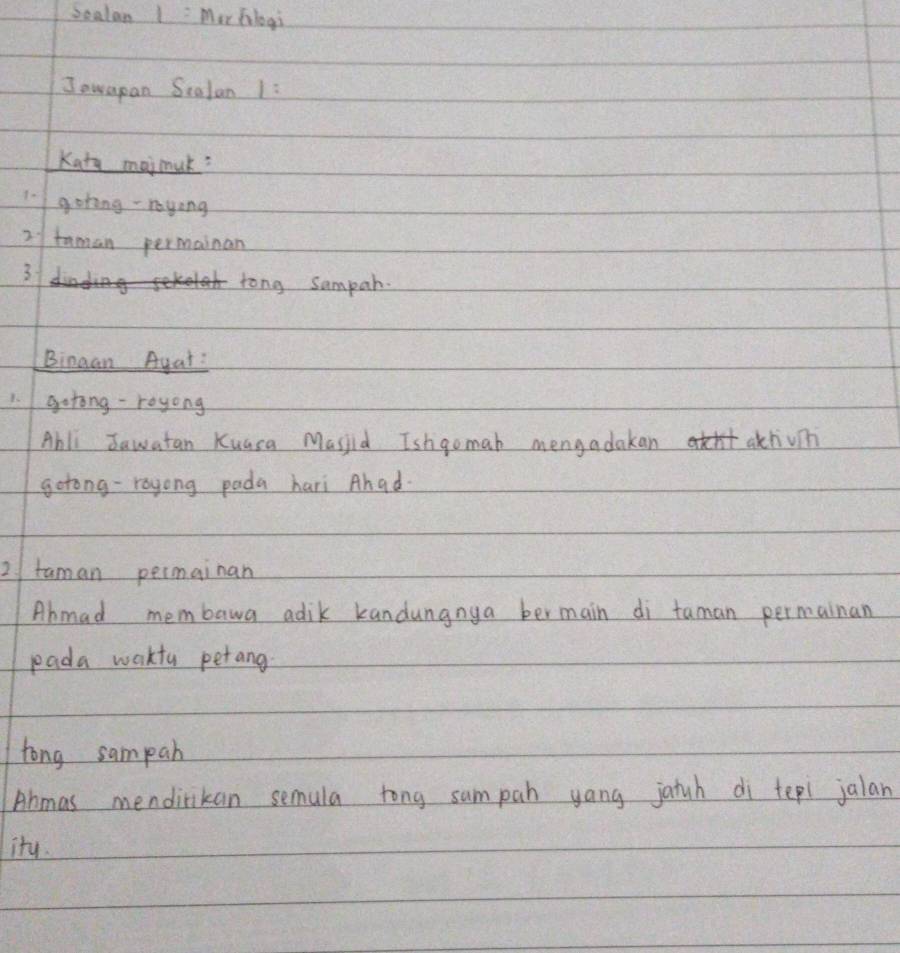 Soalan 1 : Morfologi
Jawapan Soalan 1:
Kata majmuk:
1. gotong-royong
2. taman permainan
3. dinding sekolah tong sampah.
Binaan Ayat:
1. gotong-royong
Ahli Jawatan Kuasa Masjid Ishiqomah mengadakan aktiviti
gotong-royong pada hari Ahad.
2. taman permainan
Ahmad membawa adik kandungnya bermain di taman permainan
pada waktu petang.
tong sampah
Ahmas mendirikan semula tong sampah yang jatuh di tepi jalan
itu.